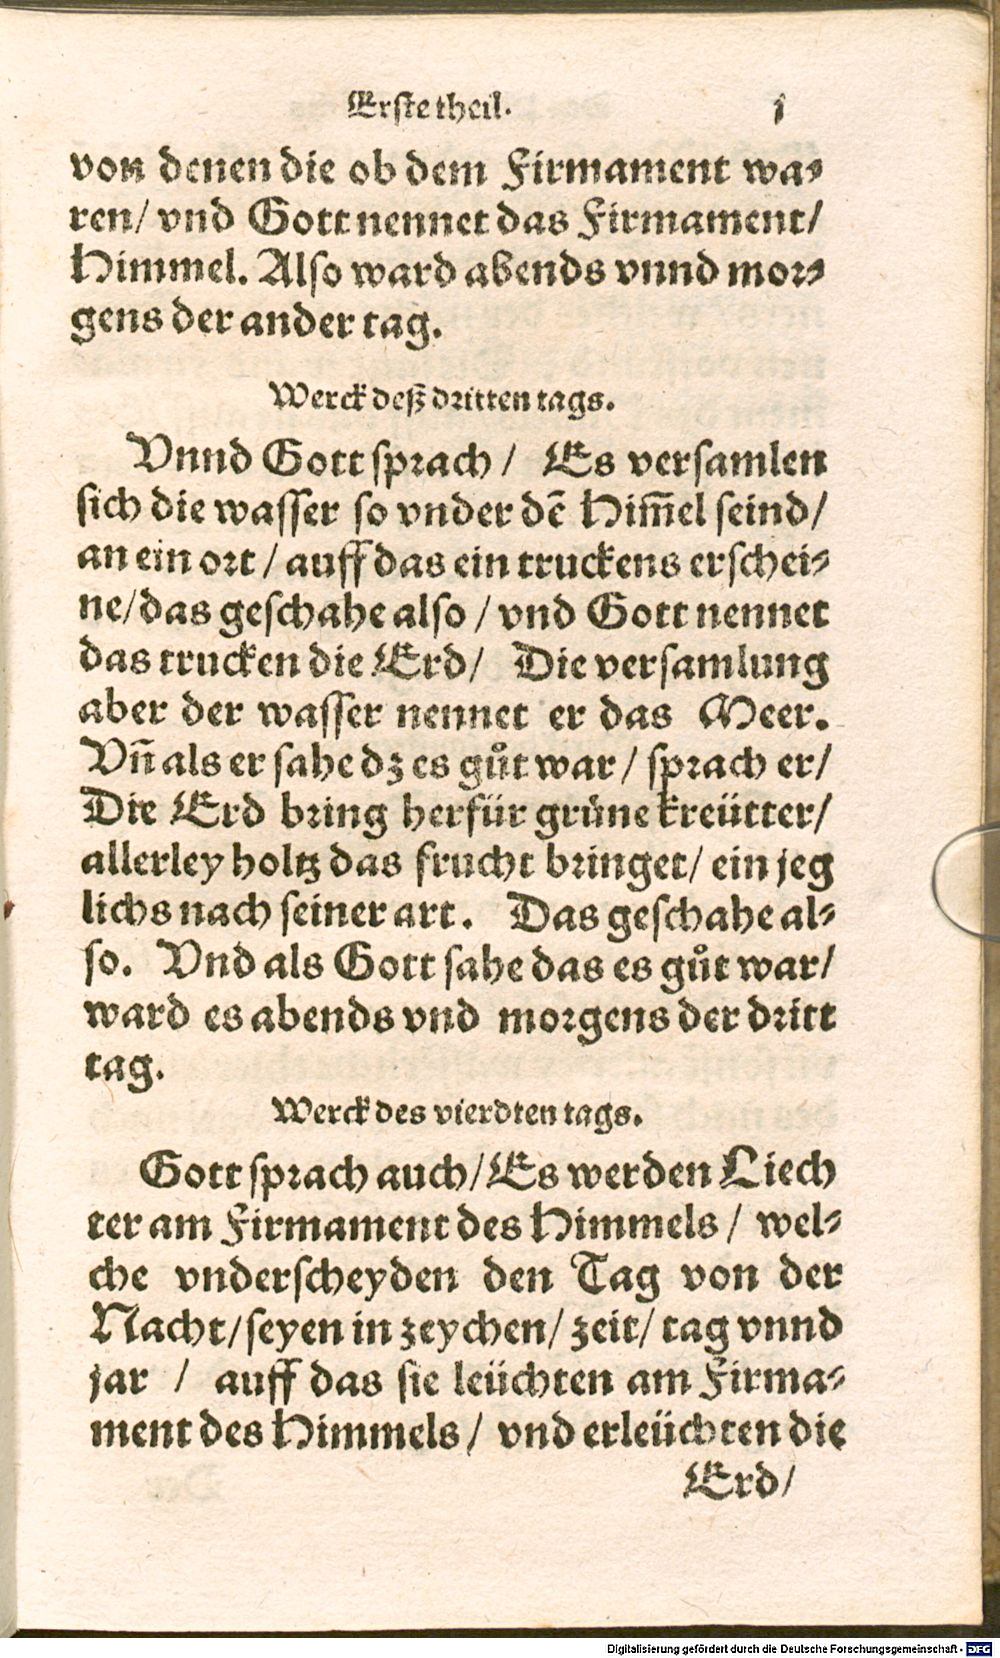 Erste theil. 1
von denen die ob dem Firmament wa⸗
ren/ vnd Gott nennet das Firmament/
Himmel. Also ward abends vnnd mor⸗
gens der ander tag.
Werck deß dritten tags.
Vnnd Gott sprach/ Es versamlen
sich die wasser so vnder dē Him̄el seind/
an ein ort/ auff das ein truckens erschei⸗
ne/ das geschahe also/ vnd Gott nennet
das trucken die Erd/ Die versamlung
aber der wasser nennet er das Meer.
Vn̄ als er sahe dz es gůt war/ sprach er/
Die Erd bring herfür grüne kreütter/
allerley holtz das frucht bringet/ ein jeg
lichs nach seiner art. Das geschahe al⸗
so. Vnd als Gott sahe das es gůt war/
ward es abends vnd morgens der dritt
tag.
Werck des vierdten tags.
Gott sprach auch/ Es werden Liech
ter am Firmament des Himmels/ wel⸗
che vnderscheyden den Tag von der
Nacht/ seyen in zeychen/ zeit/ tag vnnd
jar/ auff das sie leüchten am Firma⸗
ment des Himmels/ vnd erleüchten die
Erd/
Digitalisierung gefördert durch die Deutsche Forschungsgemeinschaft - DFG